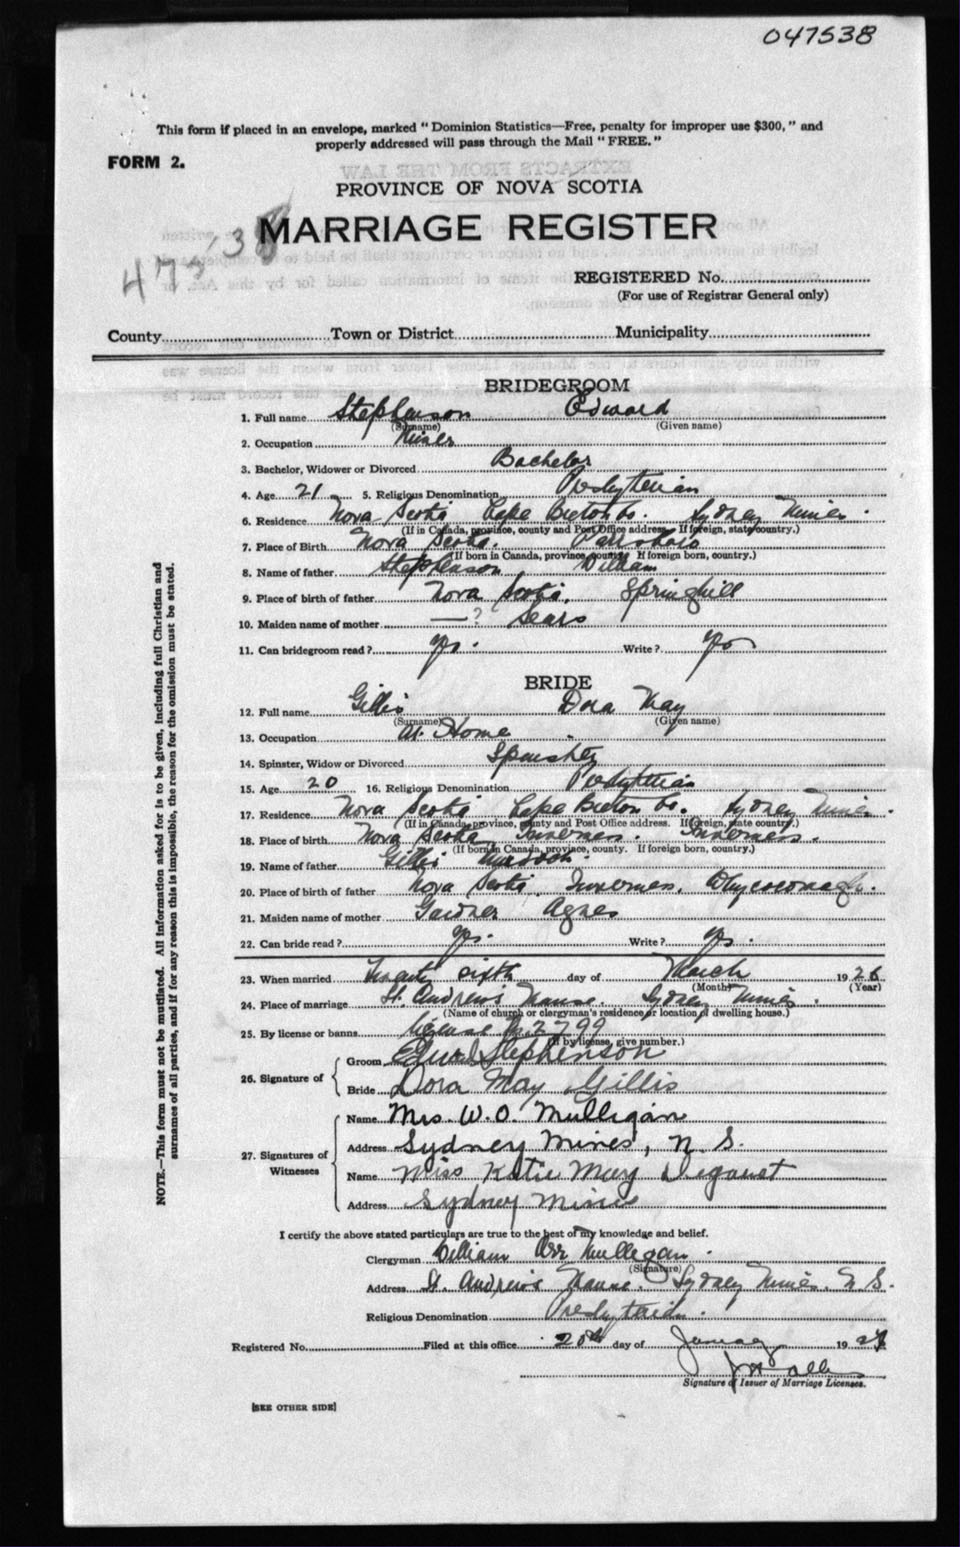 047538
This form if placed in an envelope, marked "Dominion Statistics—Free, penalty for improper use $300," and
properly addressed will pass through the Mail "FREE."
FORM 2.
PROVINCE OF NOVA SCOTIA
MARRIAGE REGISTER
REGISTERED No.
(For use of Registrar General only)
County Town or District Municipality
BRIDEGROOM
1. Full name Stephenson Edward
(Surname) (Given name)
2. Occupation Miner
3. Bachelor, Widower or Divorced Bachelor
4. Age 21 5. Religious Denomination Presbyterian
6. Residence Nova Scotia Cape Breton Co. Sydney Mines.
(If in Canada, province, county and Post Office address. If foreign, state country.)
7. Place of Birth Nova Scotia.
(If born in Canada, province, county. If foreign born, country.)
8. Name of father Stephenson William
9. Place of birth of father Nova Scotia, Springhill
10. Maiden name of mother —? Sears
11. Can bridegroom read? Yes. Write? Yes
BRIDE
12. Full name Gillis Dora May
(Surname) (Given name)
13. Occupation At Home
14. Spinster, Widow or Divorced Spinster
15. Age 20 16. Religious Denomination Presbyterian
17. Residence Nova Scotia Cape Breton Co. Sydney Mines.
(If in Canada, province, county and Post Office address. If foreign, state country.)
18. Place of birth Nova Scotia Inverness. Inverness.
(If born in Canada, province, county. If foreign born, country.)
19. Name of father Gillis Murdoch.
20. Place of birth of father Nova Scotia, Inverness, Whycocomagh.
21. Maiden name of mother Gardner Agnes
22. Can bride read? Yes. Write? Yes.
23. When married Twenty sixth day of March 1926
(Month) (Year)
24. Place of marriage St. Andrew's Manse. Sydney Mines.
(Name of church or clergyman's residence or location of dwelling house.)
25. By license or banns License No. 2799
(If by license, give number.)
26. Signature of
Groom Edward Stephenson
Bride Dora May Gillis
27. Signatures of Witnesses
Name Mrs W. O. Mulligan
Address Sydney Mines, N. S.
Name Miss Katie May
Address Sydney Mines
I certify the above stated particulars are true to the best of my knowledge and belief.
Clergyman William Orr Mulligan.
(Signature)
Address St. Andrew's Manse. Sydney Mines. N. S.
Religious Denomination Presbyterian.
Registered No. Filed at this office 20th day of January 192
Signature of Issuer of Marriage Licenses.
[SEE OTHER SIDE]
NOTE.—This form must not be mutilated. All information asked for is to be given, including full Christian and
surnames of all parties, and if for any reason this is impossible, the reason for the omission must be stated.